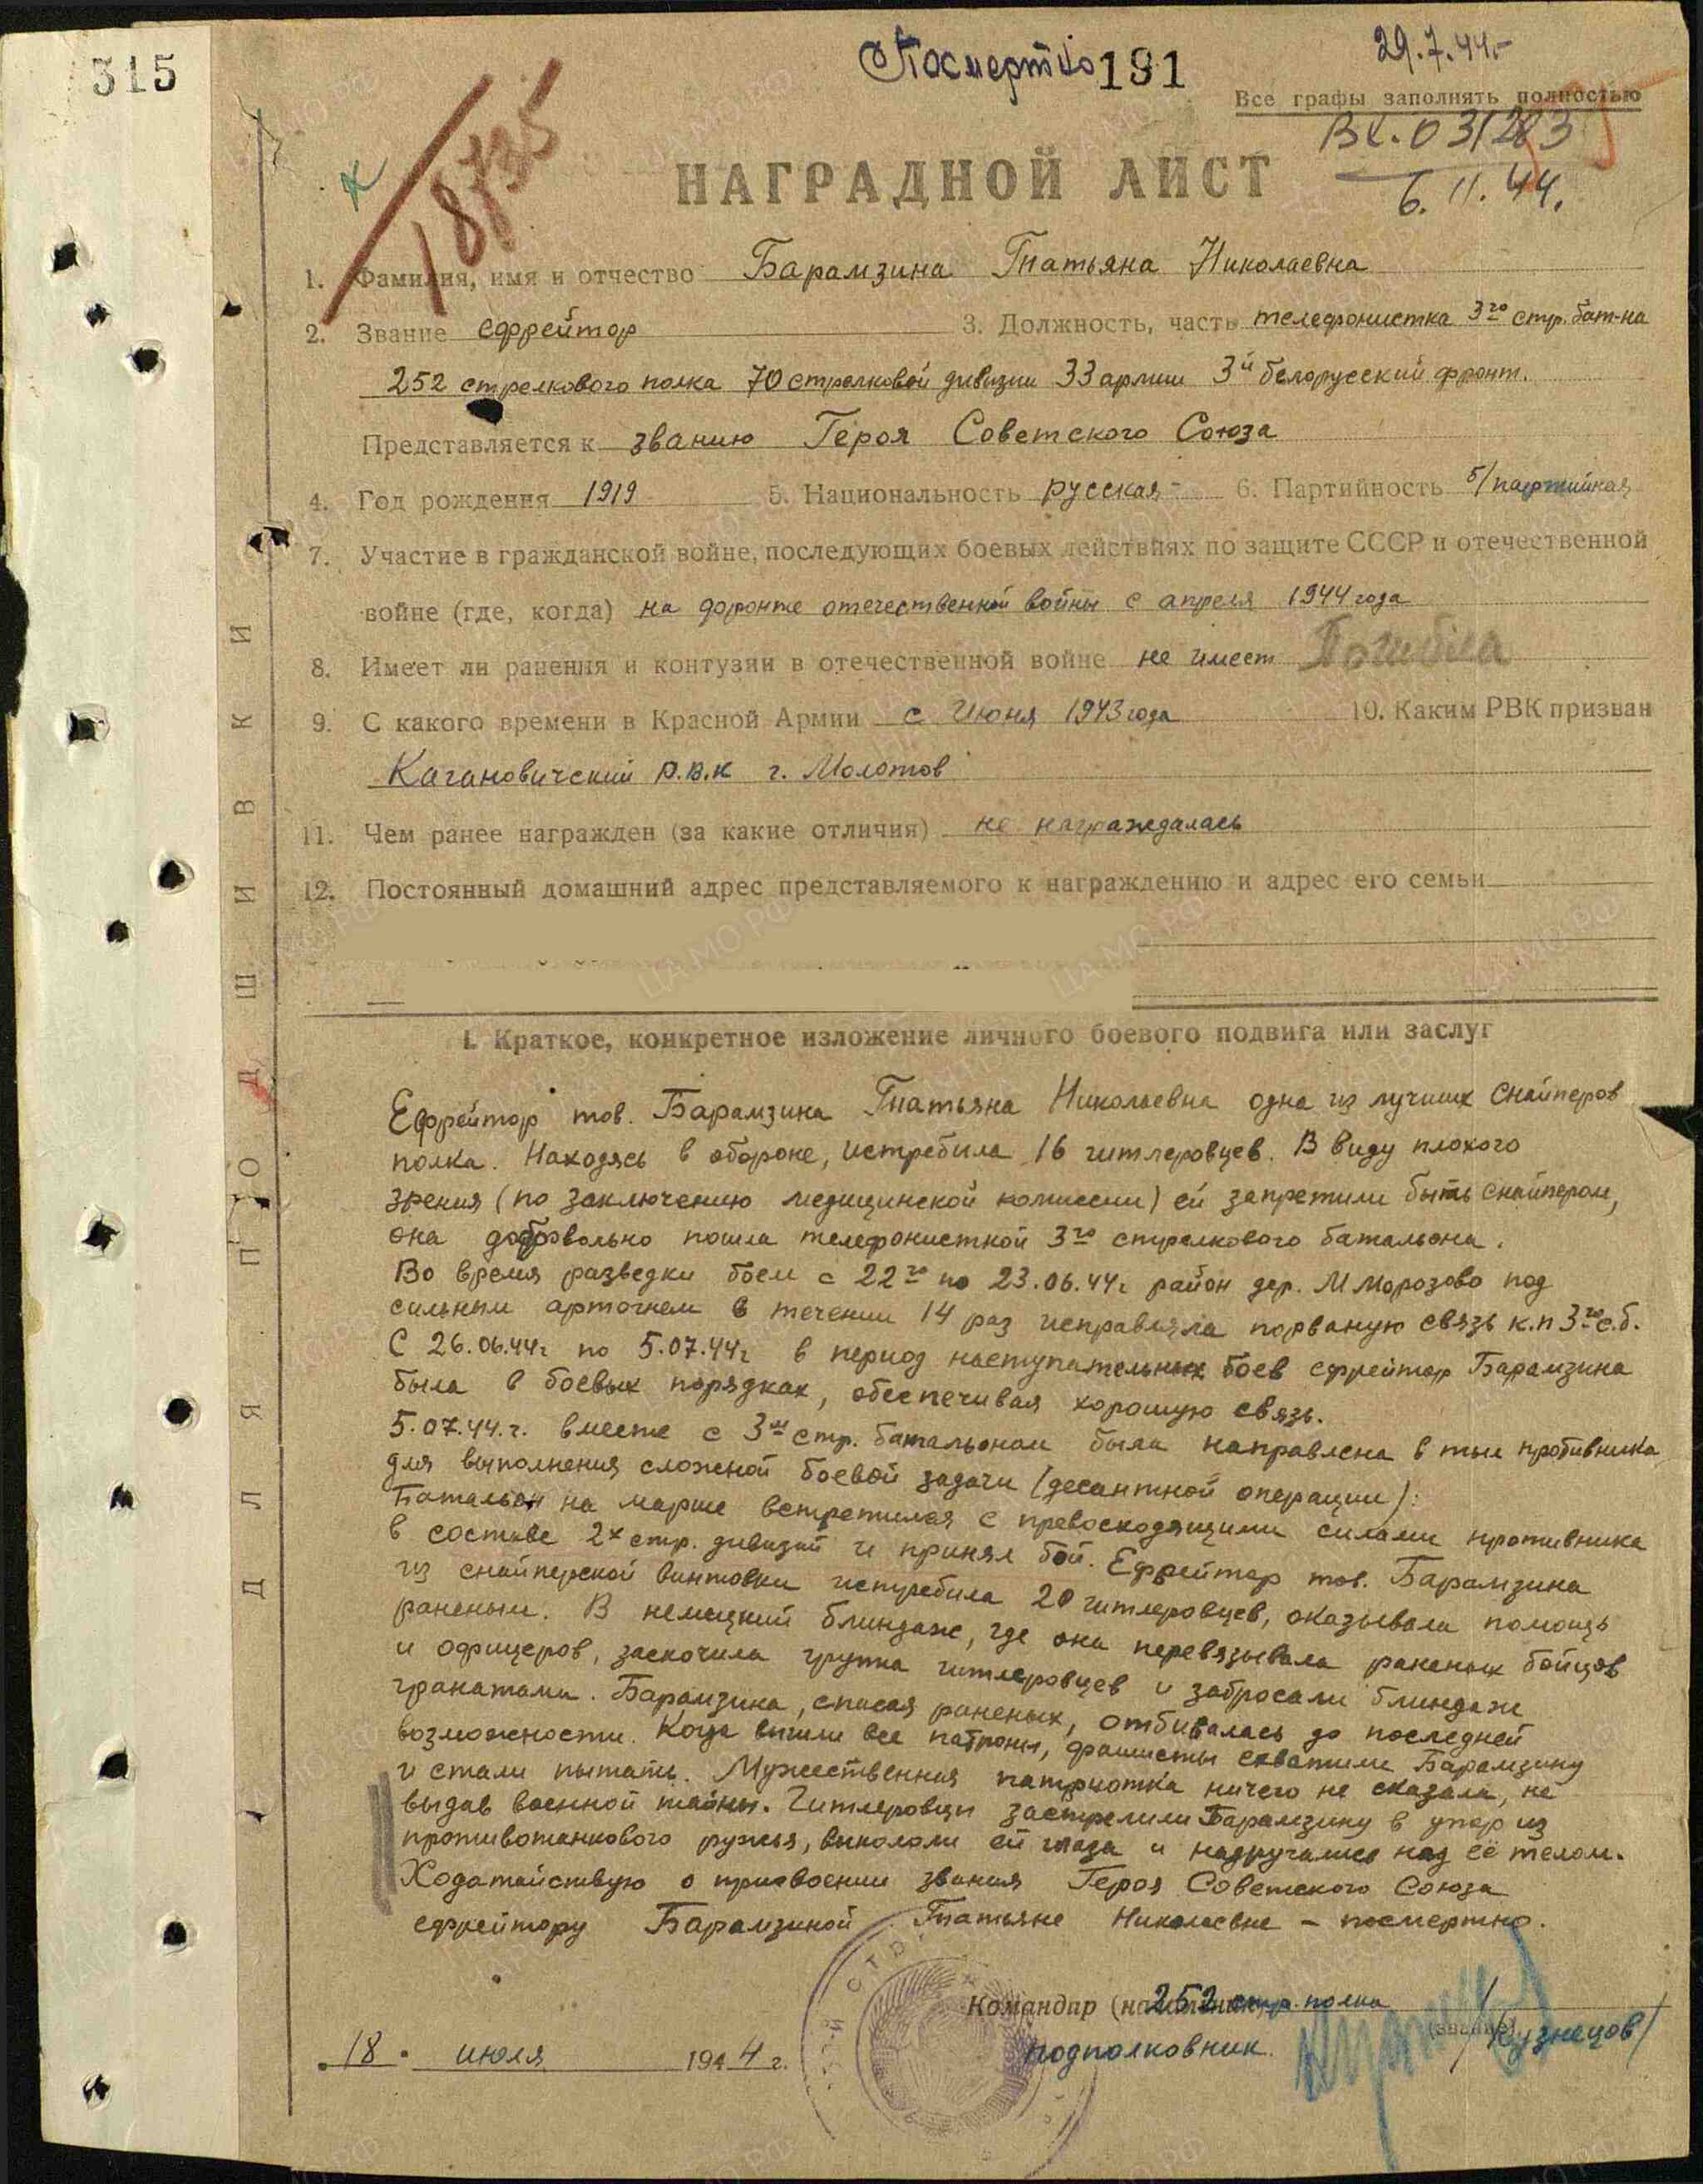 315
Посмертно 191
29.7.44.
Все графы заполнять полностью
Вх. 031283
6.11.44.
18735
НАГРАДНОЙ ЛИСТ
1. Фамилия, имя и отчество Барамзина Татьяна Николаевна
2. Звание ефрейтор 3. Должность, часть телефонистка 3го стр. бат-на
252 стрелкового полка 70 стрелковой дивизии 33 армии 3й белорусский фронт.
Представляется к званию Героя Советского Союза
4. Год рождения 1919 5. Национальность русская 6. Партийность б/партийная
7. Участие в гражданской войне, последующих боевых действиях по защите СССР и отечественной
войне (где, когда) на фронте отечественной войны с апреля 1944 года
8. Имеет ли ранения и контузии в отечественной войне не имеет Погибла
9. С какого времени в Красной Армии с Июня 1943 года 10. Каким РВК призван
Кагановичский р.в.к г. Молотов
11. Чем ранее награжден (за какие отличия) не награждалась
12. Постоянный домашний адрес представляемого к награждению и адрес его семьи
I. Краткое, конкретное изложение личного боевого подвига или заслуг
Ефрейтор тов. Барамзина Татьяна Николаевна одна из лучших снайперов
полка. Находясь в обороне, истребила 16 гитлеровцев. В виду плохого
зрения (по заключению медицинской комиссии) ей запретили быть снайпером,
она добровольно пошла телефонисткой 3го стрелкового батальона.
Во время разведки боем с 22го по 23.06.44г район дер. М Морозово под
сильным артогнем в течении 14 раз исправляла порваную связь к.п 3го с.б.
С 26.06.44г по 5.07.44г в период наступательных боев ефрейтор Барамзина
была в боевых порядках, обеспечивая хорошую связь.
5.07.44.г. вместе с 3м стр. батальоном была направлена в тыл противника
для выполнения сложной боевой задачи (десантной операции).
Батальон на марше встретился с превосходящими силами противника
в составе 2х стр. дивизий и принял бой. Ефрейтор тов. Барамзина
из снайперской винтовки истребила 20 гитлеровцев, оказывала помощь
раненым. В немецкий блиндаж, где она перевязывала раненых бойцов
и офицеров, заскочила группа гитлеровцев и забросали блиндаж
гранатами. Барамзина, спасая раненых, отбивалась до последней
возможности. Когда вышли все патроны, фашисты схватили Барамзину
и стали пытать. Мужественная патриотка ничего не сказала, не
выдав военной тайны. Гитлеровцы застрелили Барамзину в упор из
противотанкового ружья, выкололи ей глаза и надругались над её телом.
Ходатайствую о присвоении звания Героя Советского Союза
ефрейтору Барамзиной Татьяне Николаевне – посмертно.
Командир 252 стр. полка
(звание)
подполковник /Кузнецов/
18 июля 1944 г.
ДЛЯ ПОДШИВКИ
ЦА МО РФ